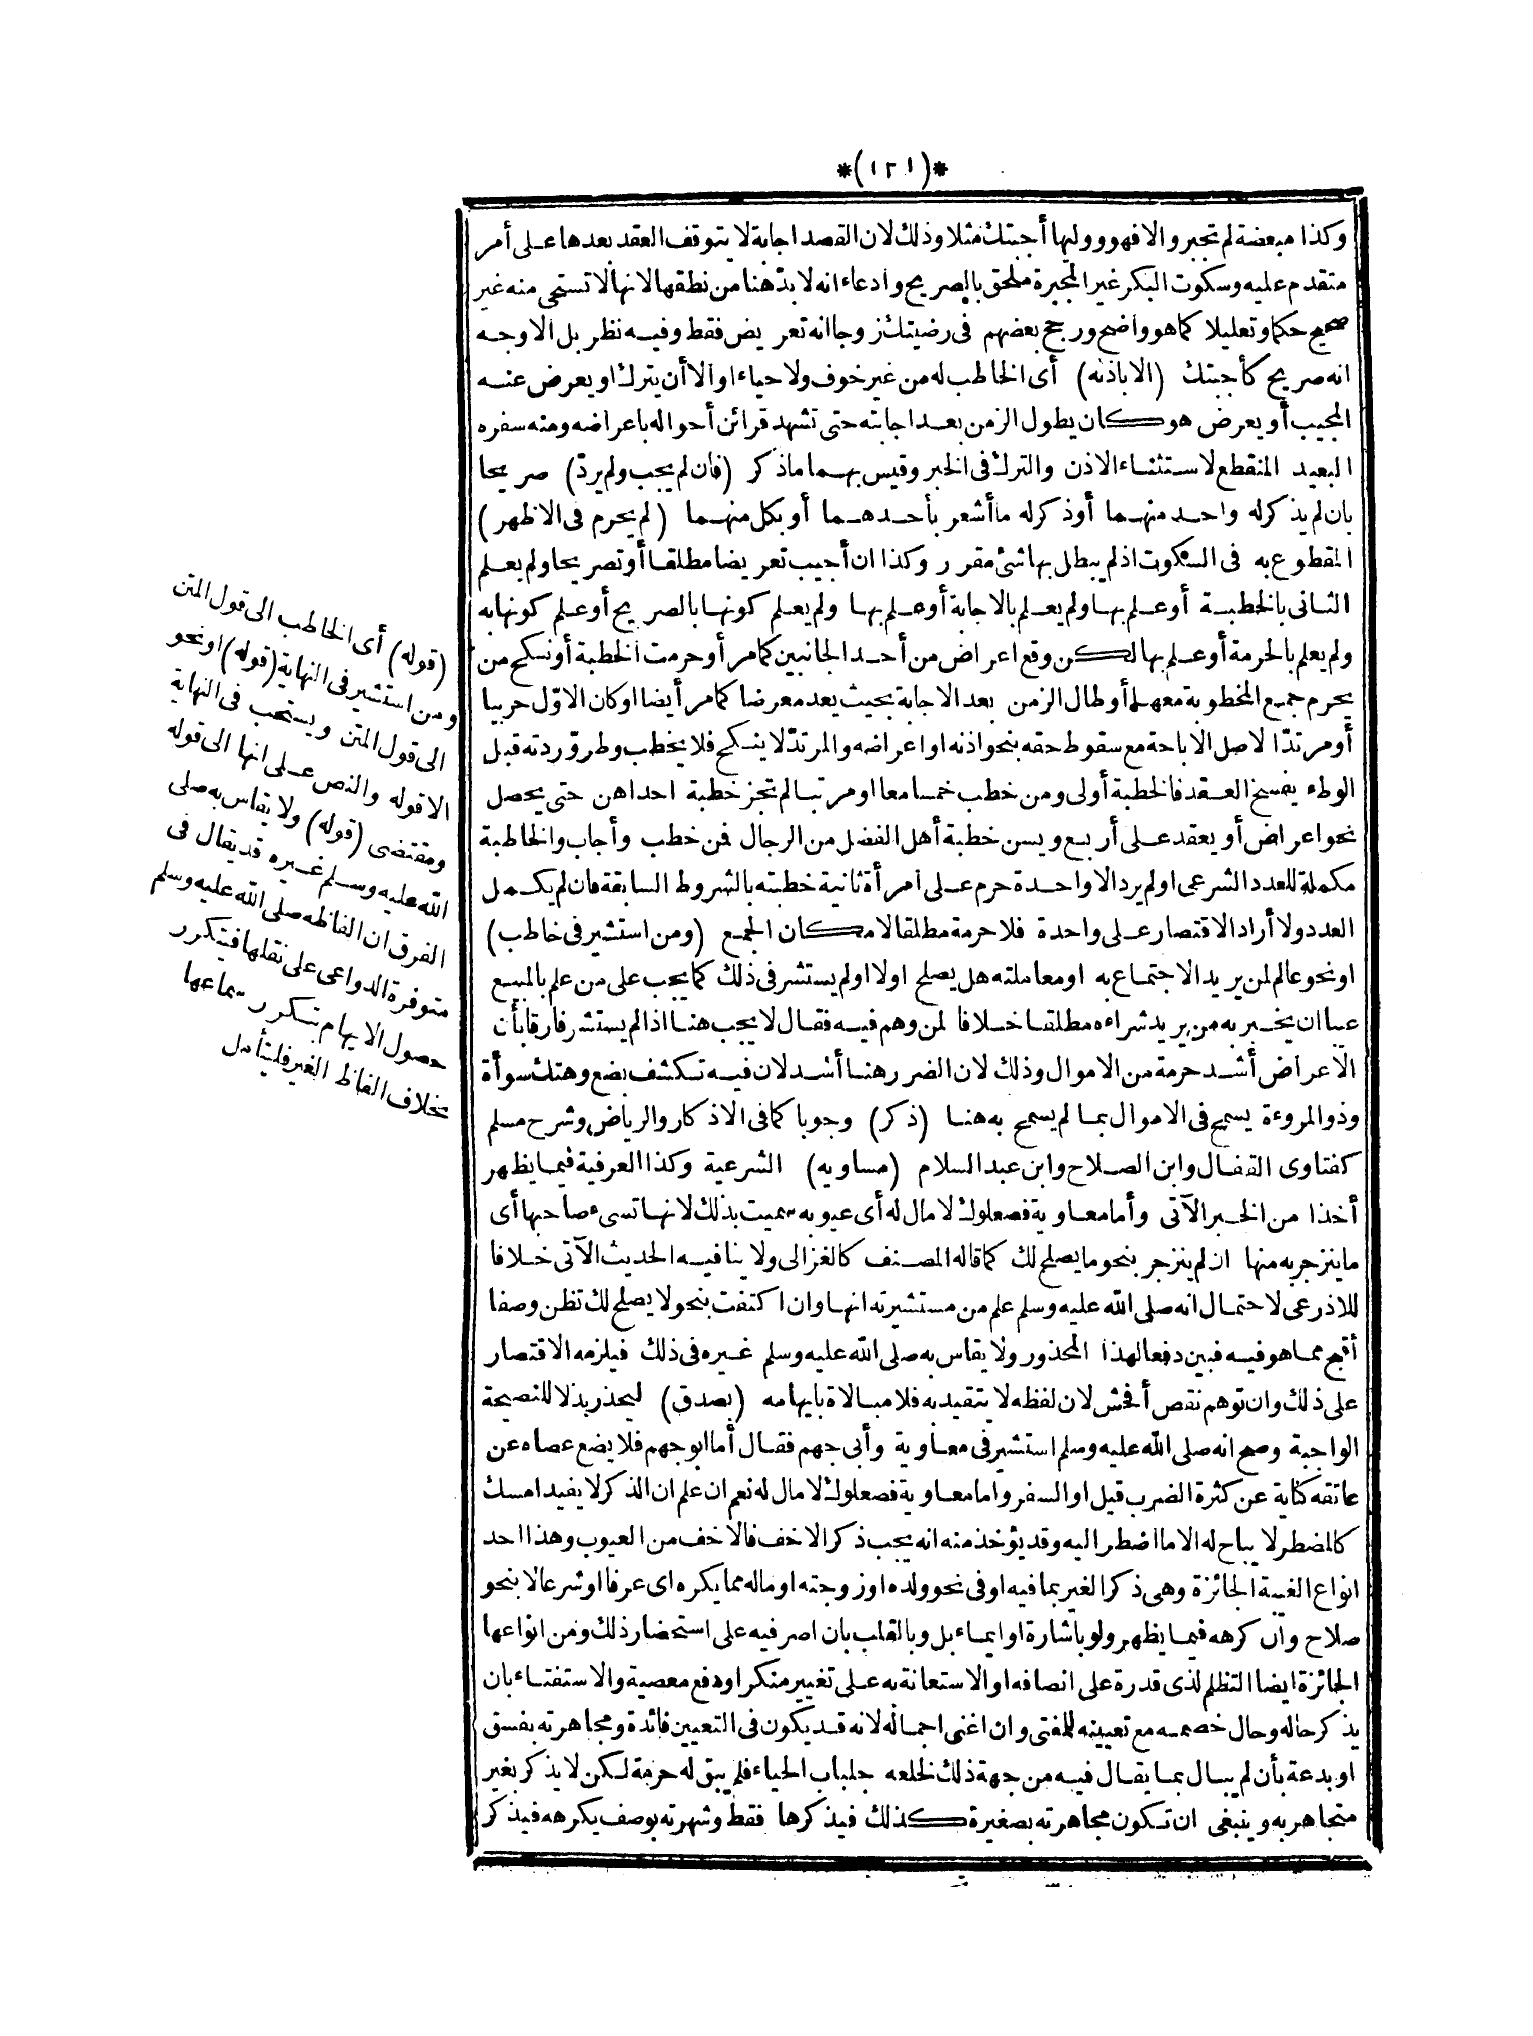 *(١٢١)*
وكذا مبعضة لم تجبر والا فهو ووليها أجبتك مثلا وذلك لان القصد اجابة لا يتوقف العقد بعدها على أمر
متقدم عليه وسكوت البكر غير المجبرة ملحق بالصريح وادعاء انه لا بدّ هنا من نطقها لانها لا تستحى منه غير
صحيح حكما وتعليلا كما هو واضح ورجح بعضهم فى رضيتك زوجا انه تعريض فقط وفيه نظر بل الاوجه
انه صريح كأجبتك (الا باذنه) أى الخاطب له من غير خوف ولا حياء او الا أن يترك او يعرض عنه
المجيب أو يعرض هو كان يطول الزمن بعد اجابته حتى تشهد قرائن أحواله باعراضه ومنه سفره
البعيد المنقطع لاستثناء الاذن والترك فى الخبر وقيس بهما ما ذكر (فان لم يجب ولم يردّ) صريحا
بان لم يذكر له واحد منهما أوذكر له ما أشعر بأحدهما أو بكل منهما (لم يحرم فى الاظهر)
المقطوع به فى السكوت اذ لم يبطل بها شئ مقرر وكذا ان أجيب تعريضا مطلقا أو تصريحا ولم يعلم
الثانى بالخطبة أو علم بها ولم يعلم بالاجابة أو علم بها ولم يعلم كونها بالصريح أو علم كونها به
ولم يعلم بالحرمة أو علم بها لكن وقع اعراض من أحد الجانبين كما مر أو حرمت الخطبة أو نكح من
يحرم جمع المخطوبة معها أو طال الزمن بعد الاجابة بحيث يعد معرضا كما مر أيضا او كان الاوّل حربيا
أو مرتدّا لاصل الاباحة مع سقوط حقه بنحو اذنه او اعراضه والمرتدّ لا ينكح فلا يخطب وطروّ ردته قبل
الوطء يفسخ العقد فالخطبة أولى ومن خطب خمسا معا او مرتبا لم تجز خطبة احداهن حتى يحصل
نحو اعراض أو يعقد على أربع ويسن خطبة أهل الفضل من الرجال فمن خطب وأجاب والخاطبة
مكملة للعدد الشرعى او لم يرد الا واحدة حرم على امرأة ثانية خطبته بالشروط السابقة فان لم يكمل
العدد ولا أراد الاقتصار على واحدة فلا حرمة مطلقا لامكان الجمع (ومن استشير فى خاطب)
او نحو عالم لمن يريد الاجتماع به او معاملته هل يصلح اولا او لم يستشر فى ذلك كما يجب على من علم بالمبيع
عيبا ان يخبر به من يريد شراءه مطلقا خلافا لمن وهم فيه فقال لا يجب هنا اذا لم يستشر فارقا بأن
الاعراض أشد حرمة من الاموال وذلك لان الضرر هنا أشد لان فيه تكشف بضع وهتك سوأة
وذو المروءة يسمح فى الاموال بما لم يسمح به هنا (ذكر) وجوبا كما فى الاذكار والرياض وشرح مسلم
كفتاوى القفال وابن الصلاح وابن عبد السلام (مساويه) الشرعية وكذا العرفية فيما يظهر
أخذا من الخبر الآتى وأما معاوية فصعلوك لا مال له أى عيوبه سميت بذلك لانها تسىء صاحبها أى
ما ينزجر به منها ان لم ينزجر بنحو ما يصلح لك كما قاله المصنف كالغزالى ولا ينافيه الحديث الآتى خلافا
للاذرعى لاحتمال انه صلى الله عليه وسلم علم من مستشيرته انها وان اكتفت بنحو لا يصلح لك تظن وصفا
أقبح مما هو فيه فبين دفعا لهذا المحذور ولا يقاس به صلى الله عليه وسلم غيره فى ذلك فيلزمه الاقتصار
على ذلك وان توهم نقص أفحش لان لفظه لا يتقيد به فلا مبالاة بايهامه (بصدق) ليحذر بذلا للنصيحة
الواجبة وصح انه صلى الله عليه وسلم استشير فى معاوية وأبى جهم فقال أما ابو جهم فلا يضع عصاه عن
عاتقه كناية عن كثرة الضرب قيل او السفر واما معاوية فصعلوك لا مال له نعم ان علم ان الذكر لا يفيد امسك
كالمضطر لا يباح له الا ما اضطر اليه وقد يؤخذ منه انه يجب ذكر الاخف فالاخف من العيوب وهذا احد
انواع الغيبة الجائزة وهى ذكر الغير بما فيه او فى نحو ولده او زوجته او ماله مما يكره اى عرفا او شرعا لا بنحو
صلاح وان كرهه فيما يظهر ولو باشارة او ايماء بل وبالقلب بان اصر فيه على استحضار ذلك ومن انواعها
الجائزة ايضا التظلم لذى قدرة على انصافه او الاستعانة به على تغيير منكر او دفع معصية والاستفتاء بان
يذكر حاله وحال خصمه مع تعيينه للمفتى وان اغنى اجماله لانه قد يكون فى التعيين فائدة ومجاهرته بفسق
او بدعة بأن لم يبال بما يقال فيه من جهة ذلك لخلعه جلباب الحياء فلم يبق له حرمة لكن لا يذكر بغير
متجاهر به وينبغى ان تكون مجاهرته بصغيرة كذلك فيذكرها فقط وشهرته بوصف يكرهه فيذكر
(قوله) أى الخاطب الى قول المتن
ومن استشير فى النهاية (قوله) او نحو
الى قول المتن ويستحب فى النهاية
الا قوله والنص على انها الى قوله
ومقتضى (قوله) ولا يقاس به صلى
الله عليه وسلم غيره قد يقال فى
الفرق ان الفاظه صلى الله عليه وسلم
متوفرة الدواعى على نقلها فيتكرر
حصول الايهام بتكرر سماعها
بخلاف الفاظ الغير فليتأمل